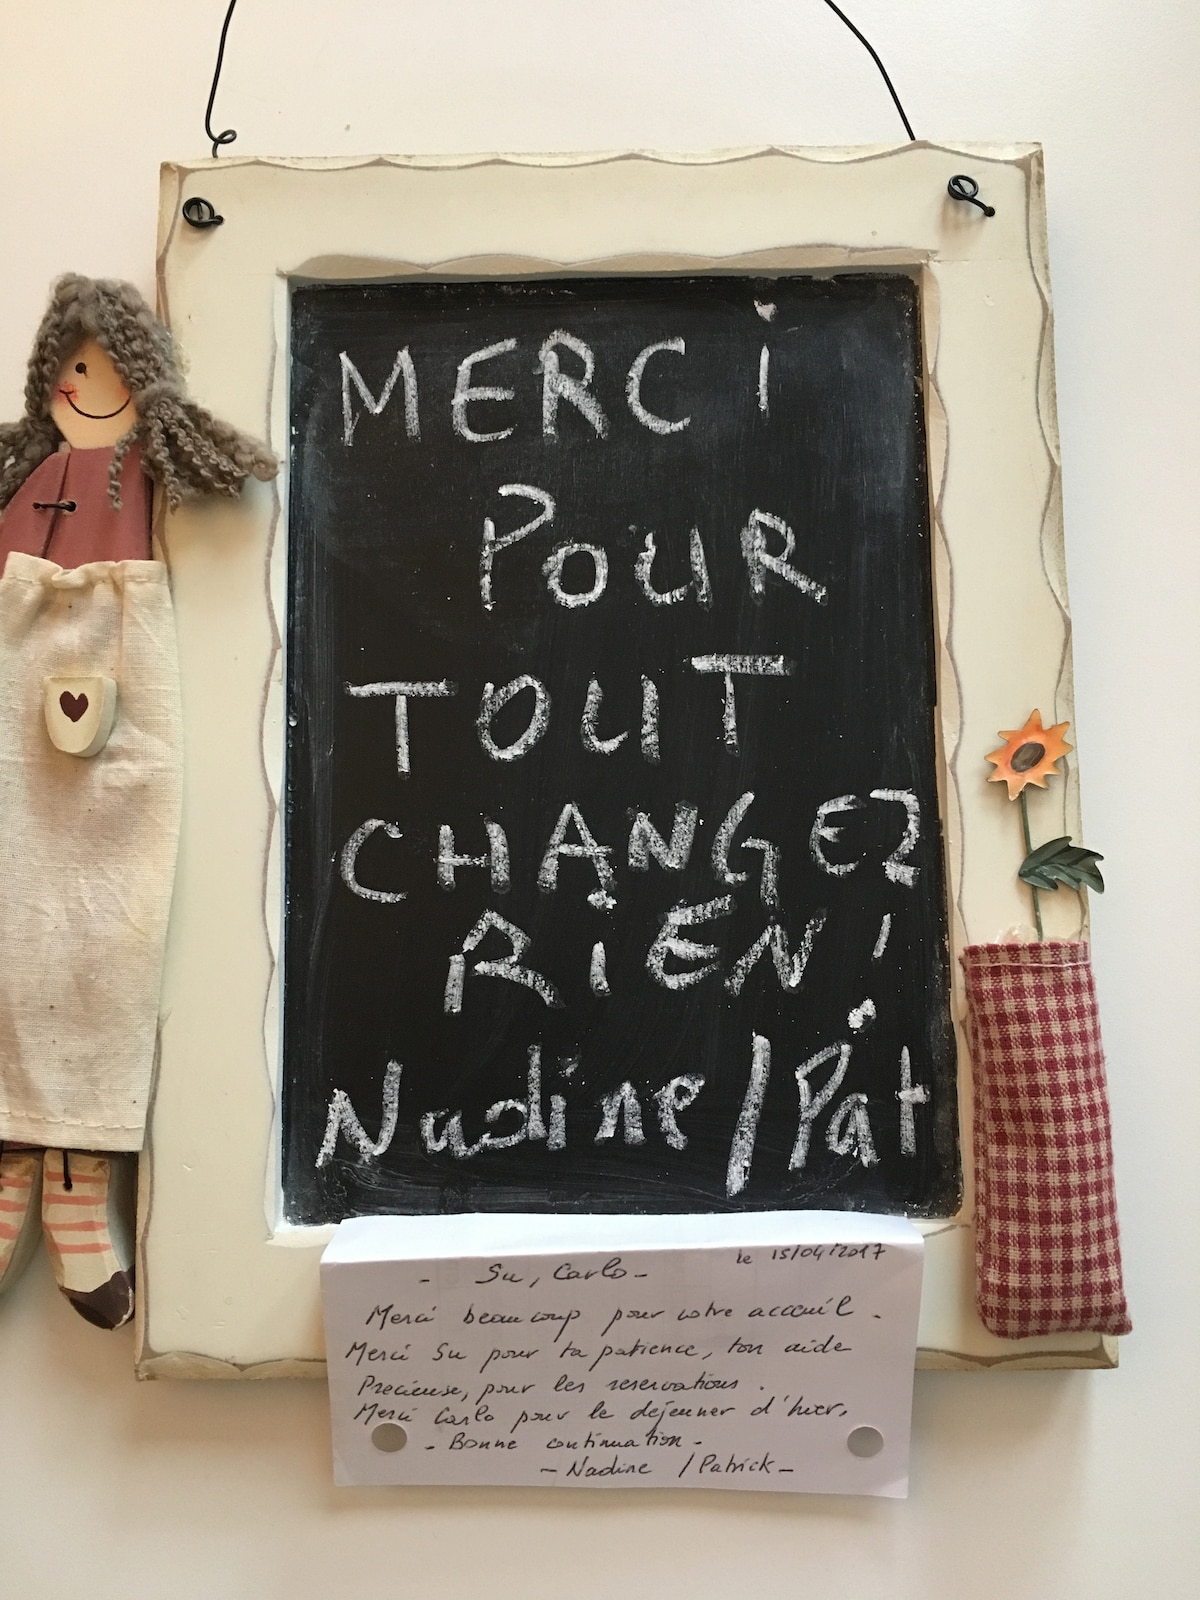 MERCi
POUR
TOUT
CHANGEZ
RIEN!
Nadine / Pat
le 15/04/2017
- Su, Carlo -
Merci beaucoup pour votre acceuil.
Merci Su pour ta patience, ton aide
Precieuse, pour les reservations.
Merci Carlo pour le déjeuner d'hier,
- Bonne continuation -
- Nadine / Patrick -